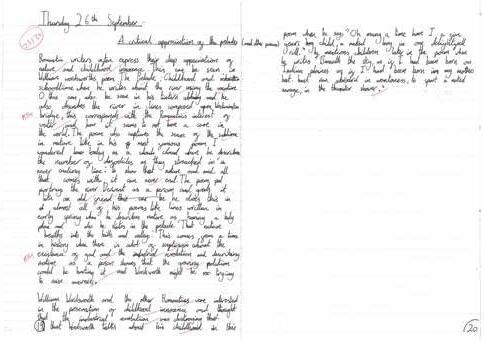 Thursday 26th September.
A critical appreciation of the prelude (and other poems)
Romantic writers often express their deep appreciations of
nature and childhood innocence. This can be seen in
William wordsworths poem The Prelude, Childhood and
schooltime when he writes about the river using the
O this can also be seen in his tintern abbey and he
also describes the river in lines composed upon Westminster
bridge, this corresponds with the Romantics interest of
water and how it seems to not have a care in
the world. The poem also captures the sense of the sublime
in nature like in his most famous poem, I
wandered lonely as a cloud when he describes
the number of daffodils as they stretched in 'a
never ending line' to show that nature and all
that comes with it can never end. The poem
portrays the river Derwent as a person and greets it
like an old friend he does this in
almost all of his poems like lines written in
early spring when he describes nature as having a holy
plan and he in the prelude. That nature
breaths into the hills and valley. This comes upon a time
in history when there is alot of scepticism about the
existence of god and the industrial revolution and describing
nature as a person shows that the growing pollution
could be hurting it and Wordsworth might be trying
to raise
William Wordsworth and the other Romantics were interested
in the preservation of childhood innocence and thought
that the industrial revolution was destroying that
that Wordsworth talks about his childhood in this
poem when he says "Oh many a time have I, a five
years boy child, a naked boy in one delightful
rill." He mentions children later in the poem when
he writes "Beneath the sky as if I had been born on
Indian plains" "I had been born
hut had run abroad in wantonness, to sport a naked
savage, in the thunder shower".
20